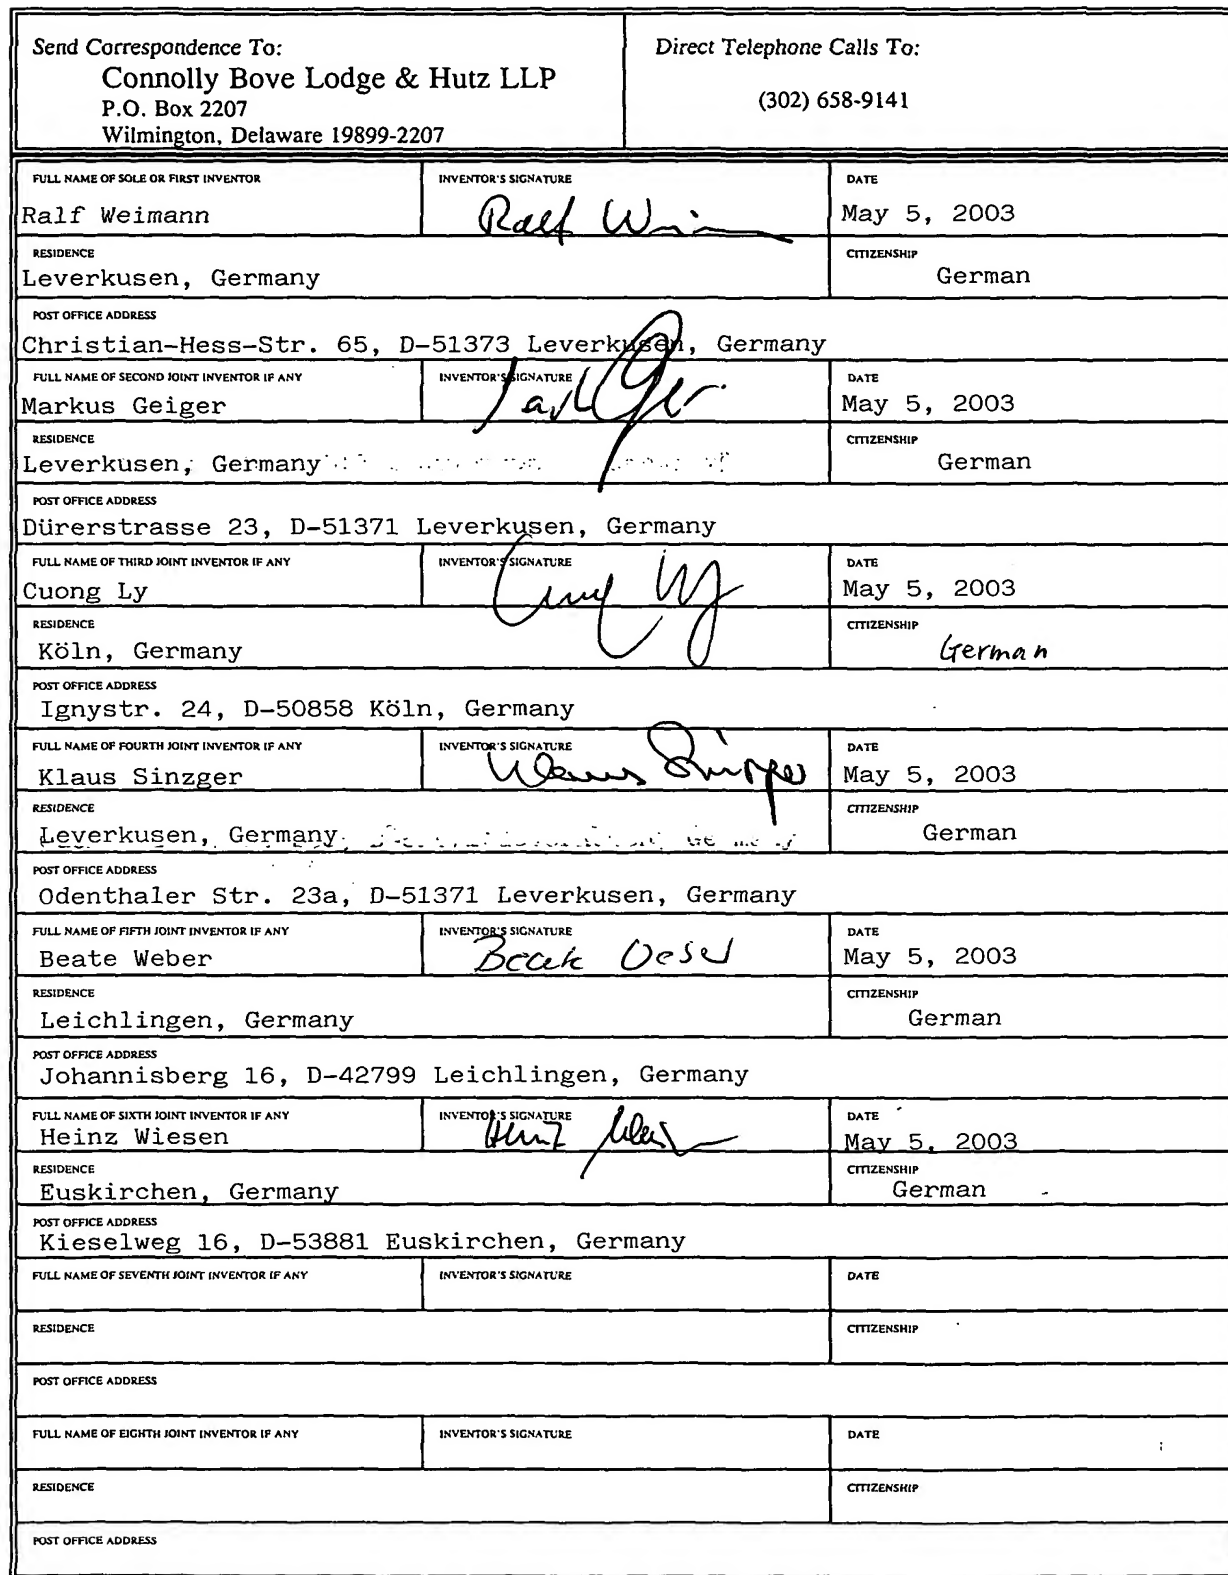 Send Correspondence To:
Connolly Bove Lodge & Hutz LLP
P.O. Box 2207
Wilmington, Delaware 19899-2207
Direct Telephone Calls To:
(302) 658-9141
FULL NAME OF SOLE OR FIRST INVENTOR INVENTOR'S SIGNATURE DATE
Ralf Weimann Ralf May 5, 2003
RESIDENCE CITIZENSHIP
Leverkusen, Germany German
POST OFFICE ADDRESS
Christian-Hess-Str. 65, D-51373 Leverkusen, Germany
FULL NAME OF SECOND JOINT INVENTOR IF ANY INVENTOR'S SIGNATURE DATE
Markus Geiger May 5, 2003
RESIDENCE CITIZENSHIP
Leverkusen, Germany German
POST OFFICE ADDRESS
Dürerstrasse 23, D-51371 Leverkusen, Germany
FULL NAME OF THIRD JOINT INVENTOR IF ANY INVENTOR'S SIGNATURE DATE
Cuong Ly May 5, 2003
RESIDENCE CITIZENSHIP
Köln, Germany German
POST OFFICE ADDRESS
Ignystr. 24, D-50858 Köln, Germany
FULL NAME OF FOURTH JOINT INVENTOR IF ANY INVENTOR'S SIGNATURE DATE
Klaus Sinzger Klaus Sinzger May 5, 2003
RESIDENCE CITIZENSHIP
Leverkusen, Germany German
POST OFFICE ADDRESS
Odenthaler Str. 23a, D-51371 Leverkusen, Germany
FULL NAME OF FIFTH JOINT INVENTOR IF ANY INVENTOR'S SIGNATURE DATE
Beate Weber Beate May 5, 2003
RESIDENCE CITIZENSHIP
Leichlingen, Germany German
POST OFFICE ADDRESS
Johannisberg 16, D-42799 Leichlingen, Germany
FULL NAME OF SIXTH JOINT INVENTOR IF ANY INVENTOR'S SIGNATURE DATE
Heinz Wiesen Heinz May 5, 2003
RESIDENCE CITIZENSHIP
Euskirchen, Germany German
POST OFFICE ADDRESS
Kieselweg 16, D-53881 Euskirchen, Germany
FULL NAME OF SEVENTH JOINT INVENTOR IF ANY INVENTOR'S SIGNATURE DATE
RESIDENCE CITIZENSHIP
POST OFFICE ADDRESS
FULL NAME OF EIGHTH JOINT INVENTOR IF ANY INVENTOR'S SIGNATURE DATE
RESIDENCE CITIZENSHIP
POST OFFICE ADDRESS